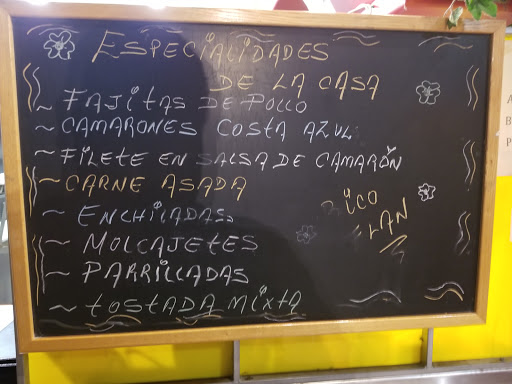 ESPECIALIDADES
DE LA CASA
~ FAJITAS DE POLLO
~ CAMARONES COSTA AZUL
~ FILETE EN SALSA DE CAMARÓN
~ CARNE ASADA
~ ENCHILADAS
~ MOLCAJETES
~ PARRILLADAS
~ TOSTADA MIXTA
RICO
LAN